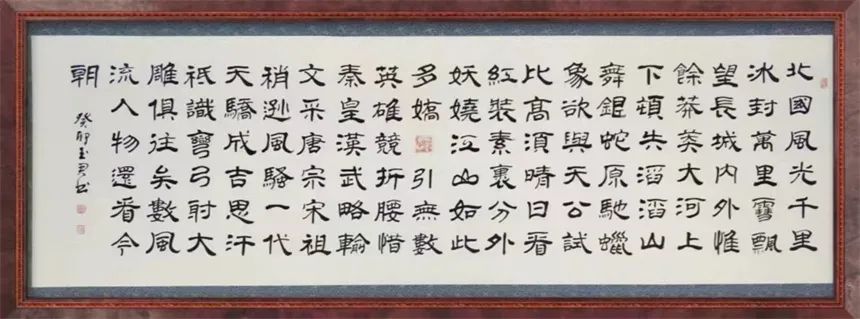 北國風光千里
冰封萬里雪飄
望長城內外惟
餘莽莽大河上
下頓失滔滔山
舞銀蛇原馳蠟
象欲與天公試
比高須晴日看
紅裝素裹分外
妖嬈江山如此
多嬌引無數
英雄競折腰惜
秦皇漢武略輸
文采唐宗宋祖
稍遜風騷一代
天驕成吉思汗
祇識彎弓射大
雕俱往矣數風
流人物還看今
朝
癸卯玉君書